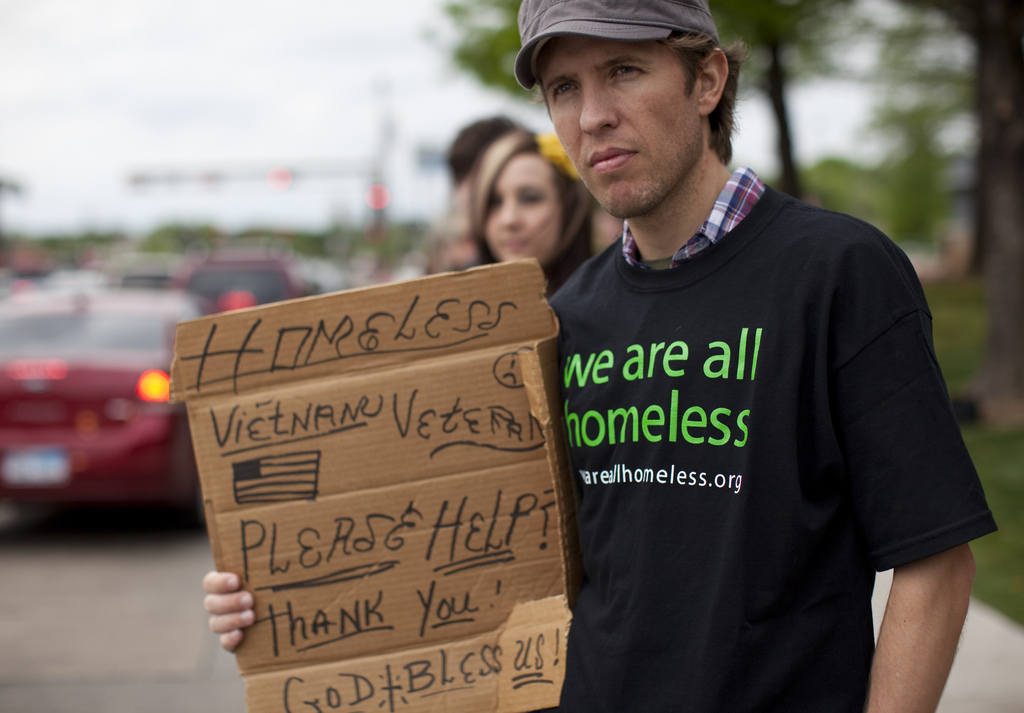 HOMELESS
VIETNAM VETERAN
PLEASE HELP!
THANK YOU!
GOD BLESS US!
we are all
homeless
areallhomeless.org